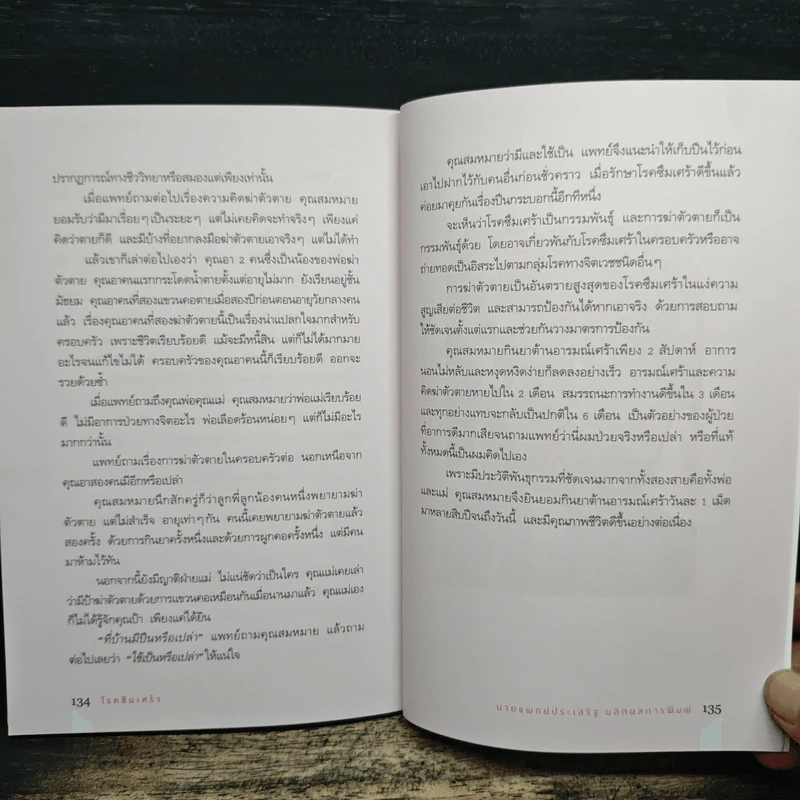 ปรากฏการณ์ทางชีววิทยาหรือสมองแต่เพียงเท่านั้น
เมื่อแพทย์ถามต่อไปเรื่องความคิดฆ่าตัวตาย คุณสมหมาย
ยอมรับว่ามีมาเรื่อยๆเป็นระยะๆ แต่ไม่เคยคิดจะทำจริงๆ เพียงแค่
คิดว่าตายก็ดี และมีบ้างที่อยากลงมือฆ่าตัวตายเอาจริงๆ แต่ไม่ได้ทำ
แล้วเขาก็เล่าต่อไปเองว่า คุณอา 2 คนซึ่งเป็นน้องของพ่อฆ่า
ตัวตาย คุณอาคนแรกกระโดดน้ำตายตั้งแต่อายุไม่มาก ยังเรียนอยู่ชั้น
มัธยม คุณอาคนที่สองแขวนคอตายเมื่อสองปีก่อนตอนอายุวัยกลางคน
แล้ว เรื่องคุณอาคนที่สองฆ่าตัวตายนี้เป็นเรื่องน่าแปลกใจมากสำหรับ
ครอบครัว เพราะชีวิตเรียบร้อยดี แม้จะมีหนี้สิน แต่ก็ไม่ได้มากมาย
อะไรจนแก้ไขไม่ได้ ครอบครัวของคุณอาคนนี้ก็เรียบร้อยดี ออกจะ
รวยด้วยซ้ำ
เมื่อแพทย์ถามถึงคุณพ่อคุณแม่ คุณสมหมายว่าพ่อแม่เรียบร้อย
ดี ไม่มีอาการป่วยทางจิตอะไร พ่อเลือดร้อนหน่อยๆ แต่ก็ไม่มีอะไร
มากกว่านั้น
แพทย์ถามเรื่องการฆ่าตัวตายในครอบครัวต่อ นอกเหนือจาก
คุณอาสองคนมีอีกหรือเปล่า
คุณสมหมายนึกสักครู่ก็ว่าลูกพี่ลูกน้องคนหนึ่งพยายามฆ่า
ตัวตาย แต่ไม่สำเร็จ อายุเท่าๆกัน คนนี้เคยพยายามฆ่าตัวตายแล้ว
สองครั้ง ด้วยการกินยาครั้งหนึ่งและด้วยการผูกคอครั้งหนึ่ง แต่มีคน
มาห้ามไว้ทัน
นอกจากนี้ยังมีญาติฝ่ายแม่ ไม่แน่ชัดว่าเป็นใคร คุณแม่เคยเล่า
ว่ามีป้าฆ่าตัวตายด้วยการแขวนคอเหมือนกันเมื่อนานมาแล้ว คุณแม่เอง
ก็ไม่ได้รู้จักคุณป้า เพียงแค่ได้ยิน
“ที่บ้านมีปืนหรือเปล่า” แพทย์ถามคุณสมหมาย แล้วถาม
ต่อไปเลยว่า “ใช้เป็นหรือเปล่า” ให้แน่ใจ
134 โรคซึมเศร้า
คุณสมหมายว่ามีและใช้เป็น แพทย์จึงแนะนำให้เก็บปืนไว้ก่อน
เอาไปฝากไว้กับคนอื่นก่อนชั่วคราว เมื่อรักษาโรคซึมเศร้าดีขึ้นแล้ว
ค่อยมาคุยกันเรื่องปืนกระบอกนี้อีกทีหนึ่ง
จะเห็นว่าโรคซึมเศร้าเป็นกรรมพันธุ์ และการฆ่าตัวตายก็เป็น
กรรมพันธุ์ด้วย โดยอาจเกี่ยวพันกับโรคซึมเศร้าในครอบครัวหรืออาจ
ถ่ายทอดเป็นอิสระไปตามกลุ่มโรคทางจิตเวชชนิดอื่นๆ
การฆ่าตัวตายเป็นอันตรายสูงสุดของโรคซึมเศร้าในแง่ความ
สูญเสียต่อชีวิต และสามารถป้องกันได้หากเอาจริง ด้วยการสอบถาม
ให้ชัดเจนตั้งแต่แรกและช่วยกันวางมาตรการป้องกัน
คุณสมหมายกินยาต้านอารมณ์เศร้าเพียง 2 สัปดาห์ อาการ
นอนไม่หลับและหงุดหงิดง่ายก็ลดลงอย่างเร็ว อารมณ์เศร้าและความ
คิดฆ่าตัวตายหายไปใน 2 เดือน สมรรถนะการทำงานดีขึ้นใน 3 เดือน
และทุกอย่างแทบจะกลับเป็นปกติใน 6 เดือน เป็นตัวอย่างของผู้ป่วย
ที่อาการดีมากเสียจนถามแพทย์ว่านี่ผมป่วยจริงหรือเปล่า หรือที่แท้
ทั้งหมดนี้เป็นผมคิดไปเอง
เพราะมีประวัติพันธุกรรมที่ชัดเจนมากจากทั้งสองสายคือทั้งพ่อ
และแม่ คุณสมหมายจึงยินยอมกินยาต้านอารมณ์เศร้าวันละ 1 เม็ด
มาหลายสิบปีจนถึงวันนี้ และมีคุณภาพชีวิตดีขึ้นอย่างต่อเนื่อง
นายแพทย์ประเสริฐ ผลิตผลการพิมพ์ 135